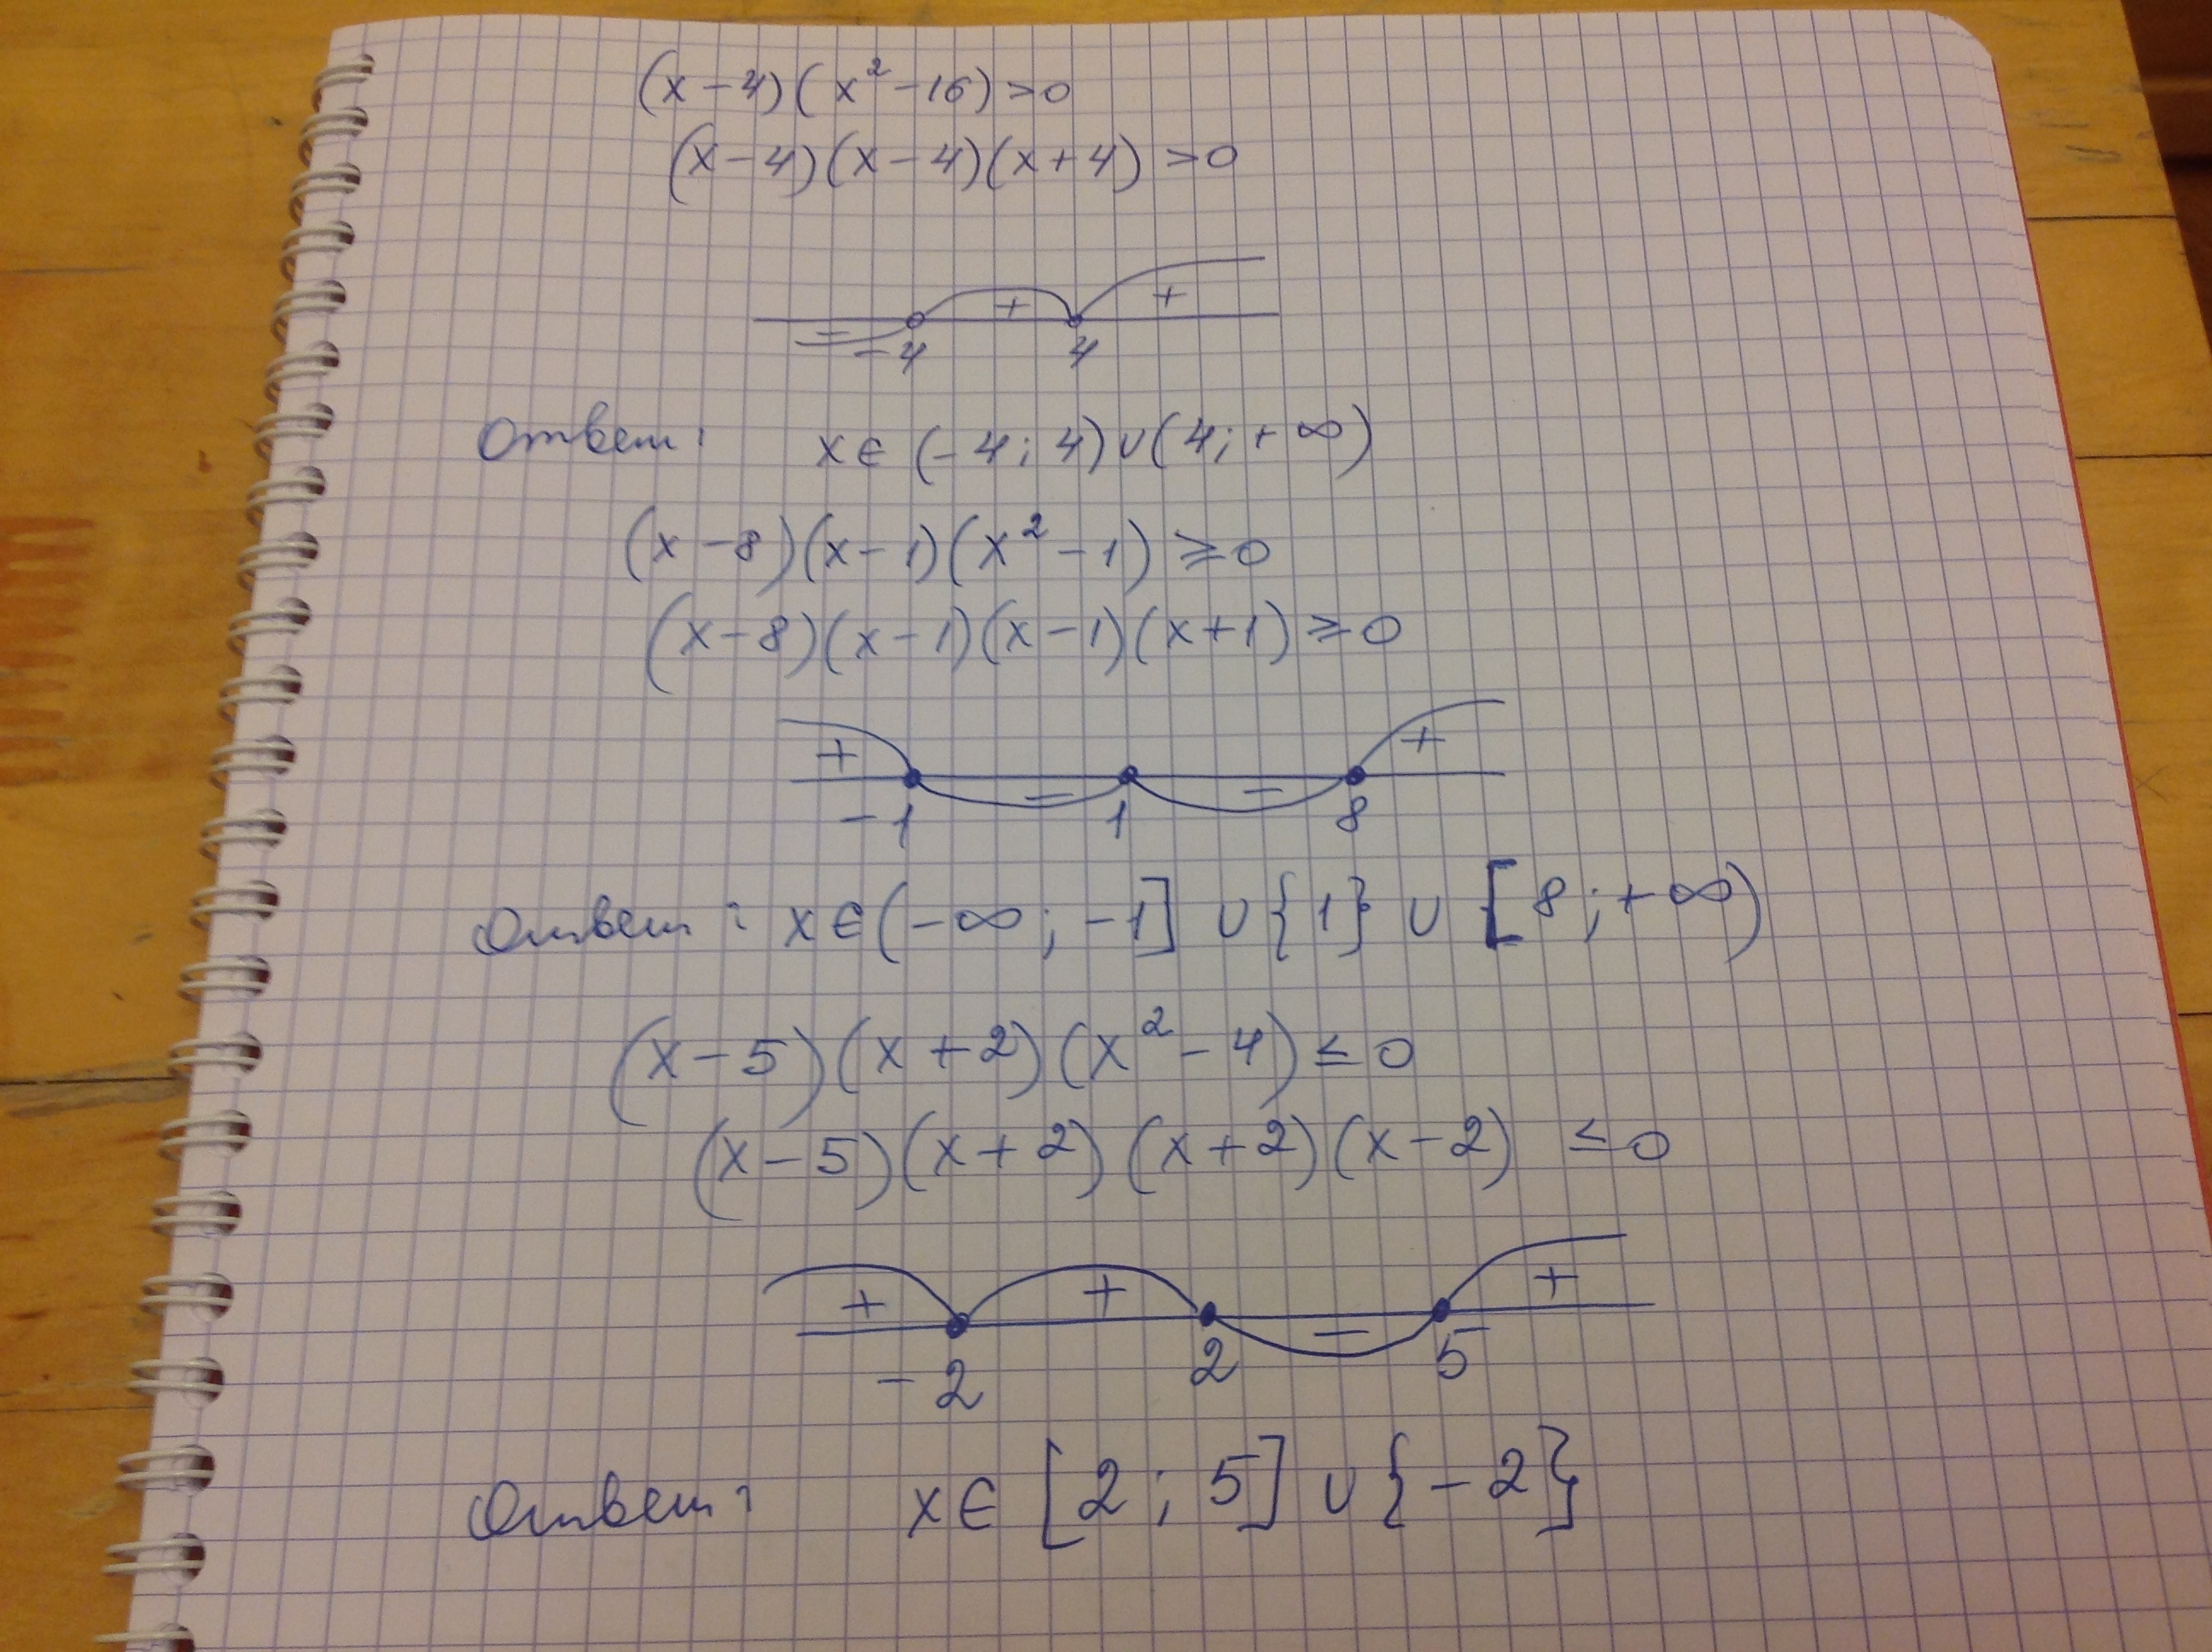 (x-4)(x²-16)>0
(x-4)(x-4)(x+4)>0
- + +
-4 4
Ответ: x∈(-4;4)∪(4;+∞)
(x-8)(x-1)(x²-1)≥0
(x-8)(x-1)(x-1)(x+1)≥0
+ - - +
-1 1 8
Ответ: x∈(-∞;-1]∪{1}∪[8;+∞)
(x-5)(x+2)(x²-4)≤0
(x-5)(x+2)(x+2)(x-2)≤0
+ + - +
-2 2 5
Ответ: x∈[2;5]∪{-2}